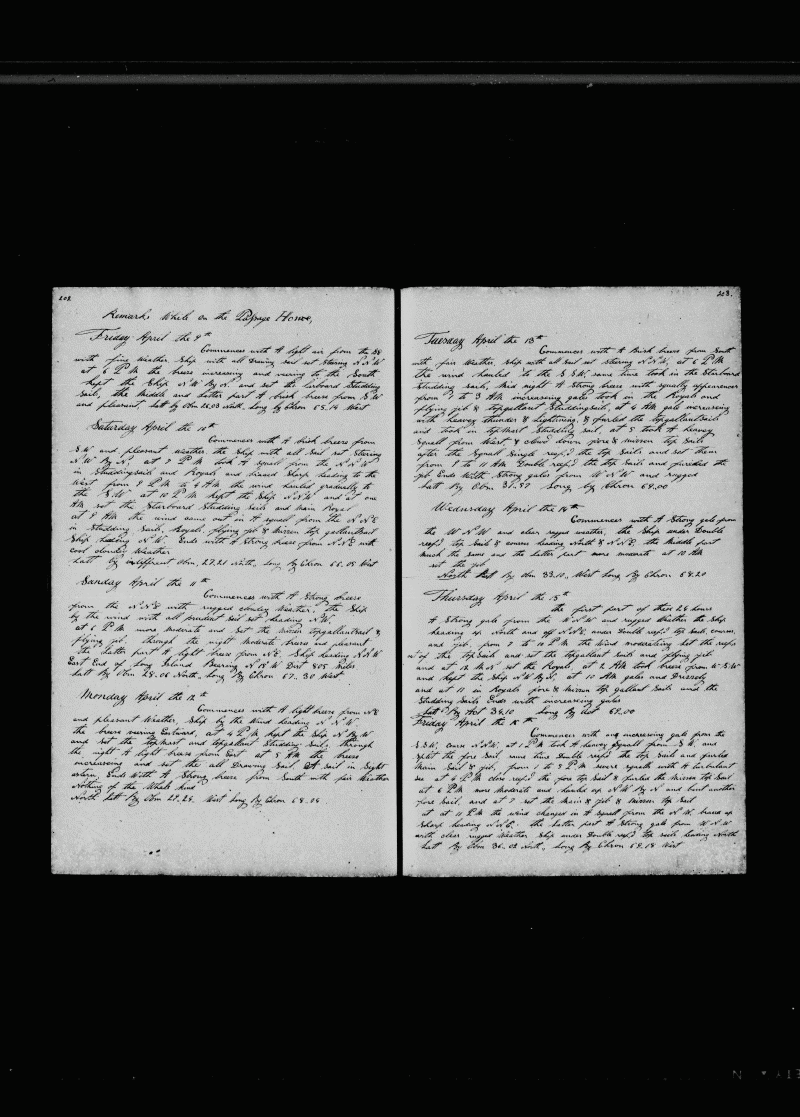 202
Remarks While on the Passage Home,
Friday April the 9th
Commences with A light air from the SE
with fine Weather Ship with all Drawing sail set Stering N N W
at 6 P.M the breeze increasing and vering to the South
kept the Ship N W By N. and set the larboard Studding
Sails, the Middle and latter part A brisk breeze from S W
and pleasant, Latt by Obm 26,03 North, Long by Chron 65.14 West
Saturday April the 10th
Commences with A brisk breeze from
S.W and pleasant Weather, the Ship with all Sail set Stering
N.W By N, at 7 P.M took A squall from the N.N.W
in Studdingsails and Royals and braced Sharp heading to the
West from 9 P.M to 4 A.M the wind hauled gradually to
the S.W. at 10 P.M kept the Ship N N W and at one
AM set the Starboard Studding Sails and Main Royal
at 8 AM the wind came out in A squall from the N.N.E
in Studding Sails, Royals, flying jib & Mizzen top gallantsail
Ship heading N.W. Ends with A Strong breeze from N.N.E with
cool cloudy Weather
Latt by indifferent Obm, 27,21 North, Long By Chron 66.08 West
Sunday April the 11th
Commences with A Strong breeze
from the N.N.E with rugged cloudy Weather, the Ship
by the wind with all prudent sail set heading N.W,
at 6 P.M more Moderate and Set the Mizzen Topgallantsail &
flying jib, through the night Moderate breeze and pleasant
the latter part A light breeze from N.E, Ship heading N.N.W
East End of Long Island Bearing N W Dist 805 Miles
Latt By Obm 28.06 North, Long By Chron 67.30 West
Monday April the 12th
Commences with A light breeze from NE
and pleasant Weather, Ship by the Wind heading N N W,
the breeze vering Eastward, at 4 P.M kept the Ship N By W
and set the topMast and topgallant Studding Sails, through
the night A light breeze from East at 5 AM the breeze
increasing and set the all Drawing Sail, A Sail in Sight
astern, Ends With A Strong breeze from South with fair Weather
Nothing of the Whale kind
North Latt By Obm 29.24, West Long By Chron 68.04
203.
Tuesday April the 13th
Commences with A Brisk breeze from South
with fair Weather Ship with all Sail set stering N.N.W, at 6 P.M
the wind hauled to the S.S.W, same time took in the Starboard
Studding Sails, Mid night A Strong breeze with squally appearances
from 1 to 3 AM increasing gales took in the Royals and
flying jib & topgallant Studdingsail, at 4 AM gale increasing
with heavy thunder & Lightning, & furled the topgallantsails
and took in topMast Studding Sail, at 5 took A heavy
Squall from West & clued down fore & mizzen top Sails
after the Squall Single reef'd the top Sails and set them
from 9 to 11 AM Double reef'd the top Sails and furled the
jib Ends With Strong gales from W N W and rugged
Latt By Obm 31.57 Long by Chron 69,00
Wednesday April the 14th
Commences with A Strong gale from
the W N W and clear rugged weather, the Ship under Double
reef'd top Sails & courses heading North & N.N.E, the Middle part
much the same and the latter part more moderate at 10 AM
set the jib
North Latt By Obm 33.10, West Long By Chron 68.20
Thursday April the 15th
the first part of these 24 hours
A Strong gale from the W N W and rugged Weather the Ship
heading up North and off N.N.E, under Double reef'd top Sails, courses,
and jib, from 7 to 10 P.M the Wind moderating let the reefs
out of the topSails and set the topgallant Sails and flying jib
and at 12 M.N set the Royals, at 2 AM took breeze from W.S.W
and kept the Ship N W By N, at 10 AM gales and Drizzely
and at 11 in Royals fore & Mizzen top gallant Sails and the
Studding Sails Ends with increasing gales
Latt By Act 34.10 Long By Act 68,00
Friday April the 16th
Commences with an increasing gale from the
S.S.W, Course N.N.W, at 1 P.M took A heavy squall from S W, and
split the fore Sail same time Double reef'd the top Sails and furled
Main Sail & jib, from 1 to 3 P.M severe squalls with A turbulant
sea at 4 P.M close reef'd the fore top Sail & furled the Mizzen top Sail
at 6 P.M more Moderate and hauled up N.W By N and bent another
fore Sail, and at 7 set the Main & jib & Mizzen top Sail
at at 11 P.M the wind changed in A squall from the N W, braced up
Sharp heading N.N.E, the latter part A Strong gale from W N W
with clear rugged Weather Ship under Double reef'd top sails heading North
Latt By Obm 36.08 North, Long By Chron 69.18 West